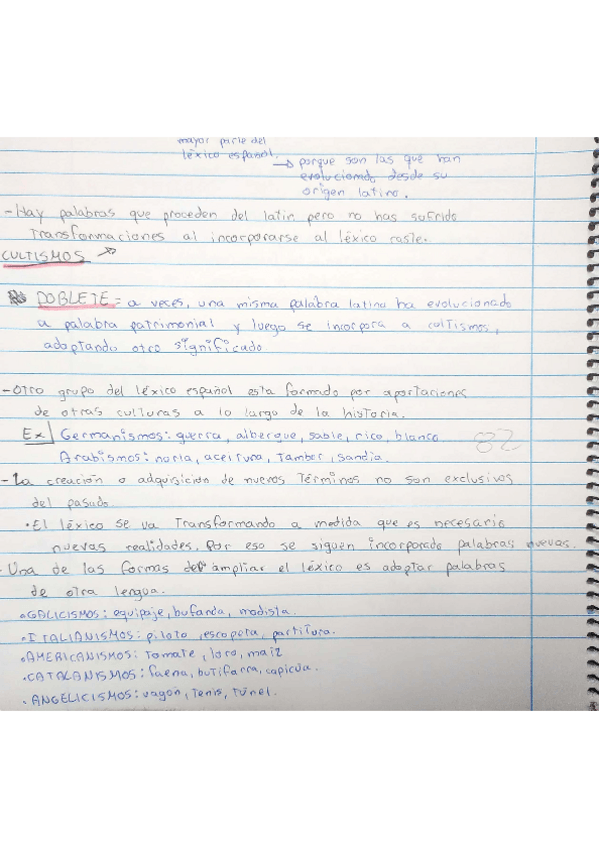 mayor parte del
léxico español. → porque son las que han
evolucionado desde su
origen latino.
- Hay palabras que proceden del latin pero no has sufrido
Transformaciones al incorporarse al léxico
CULTISMOS
DOBLETE = a veces, una misma palabra latina ha evolucionado
a palabra patrimonial y luego se incorpora a cultismos,
adoptando otro significado
- Otro grupo del léxico español esta formado por aportaciones
de otras culturas a lo largo de la historia.
Ex Germanismos: guerra, albergue, sable, rico, blanco
Arabismos: noria, aceituna, Tambor, sandia.
- La creación o adquisicio de nuevos Términos no son exclusivos
del pasado.
• El léxico se va Transformando a medida que es necesario
nuevas realidades. Por eso se siguen incorporado palabras nuevas.
- Una de las formas de ampliar el léxico es adoptar palabras
de otra lengua.
• GALICISMOS: equipaje, bufanda, modista.
• ITALIANISMOS: piloto, escopeta, partitura.
• AMERICANISMOS: Tomate, loro, maíz
• CATALANISMOS: faena, butifarra, capicúa.
• ANGELICISMOS: vagón, Tenis, Túnel.